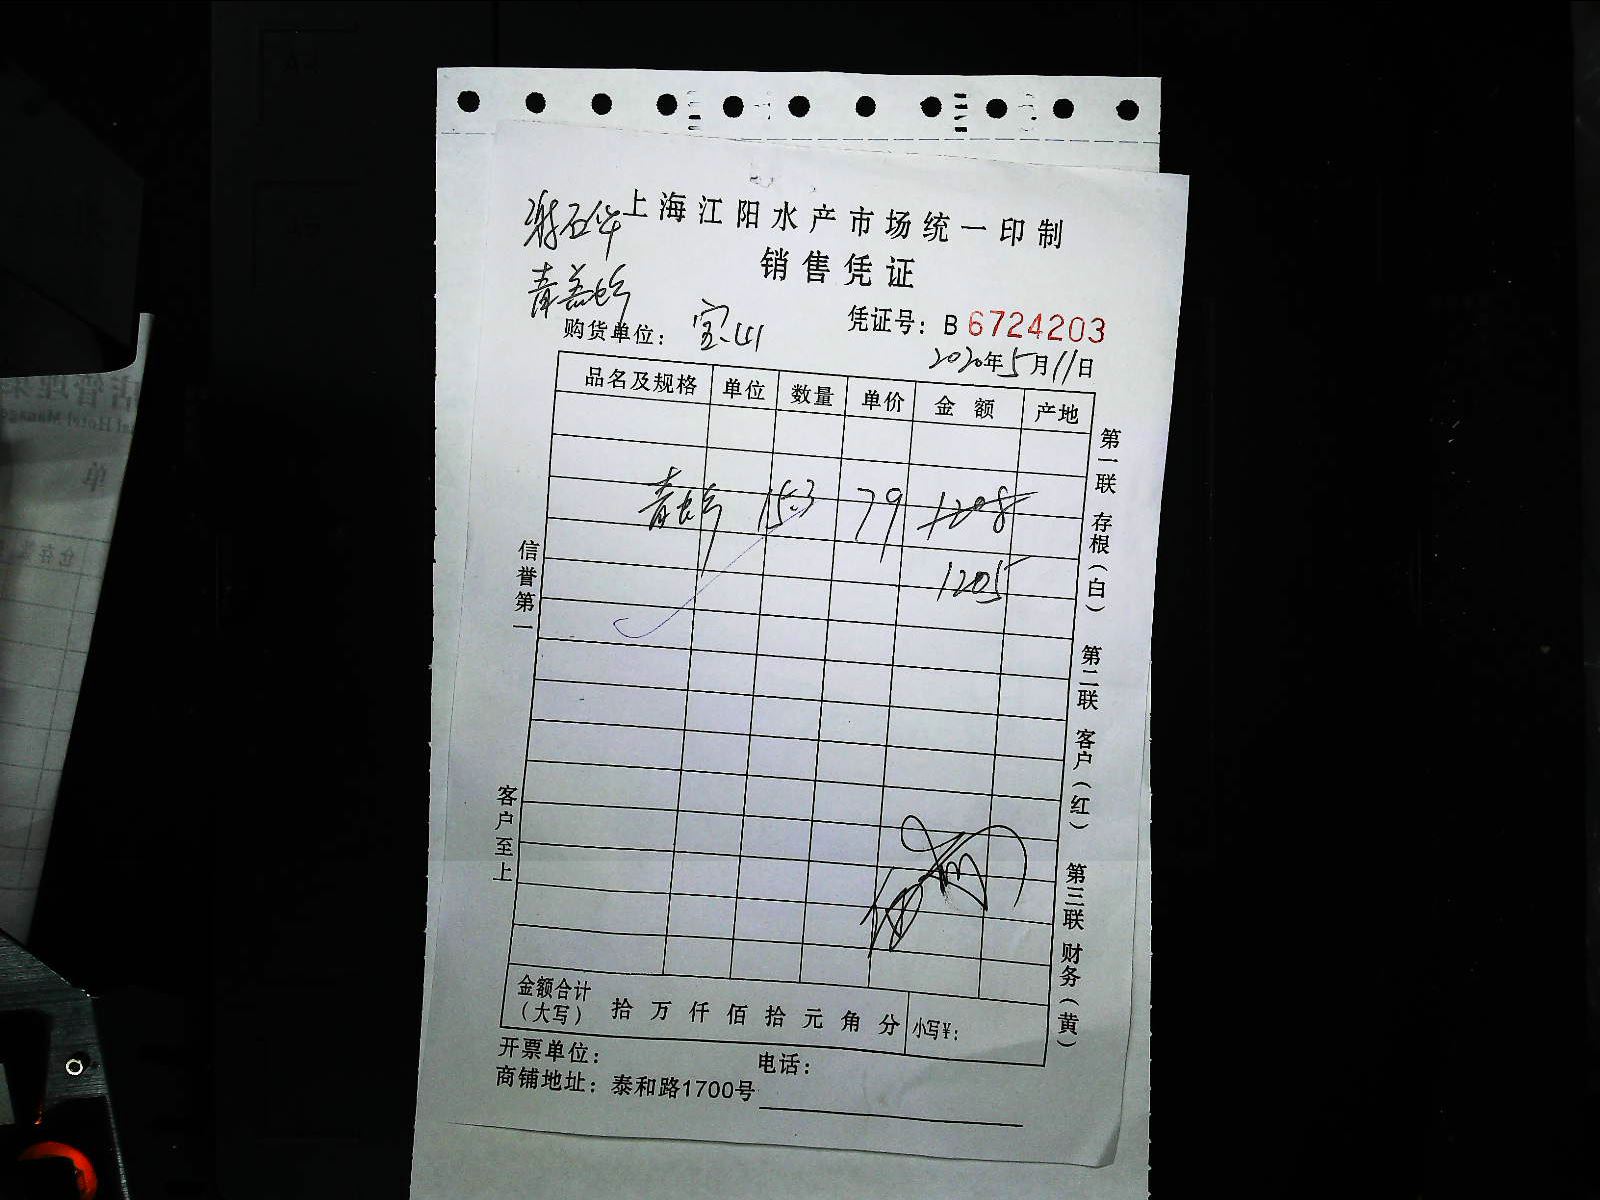 上海江阳水产市场统一印制
销售凭证
凭证号：B 6724203
购货单位：宝山
2020年5月11日
品名及规格 单位 数量 单价 金额 产地
青 15.3 79 1208
1205
信誉第一
客户至上
第一联 存根（白）
第二联 客户（红）
第三联 财务（黄）
金额合计（大写） 拾 万 仟 佰 拾 元 角 分 小写¥：
开票单位： 电话：
商铺地址：泰和路1700号